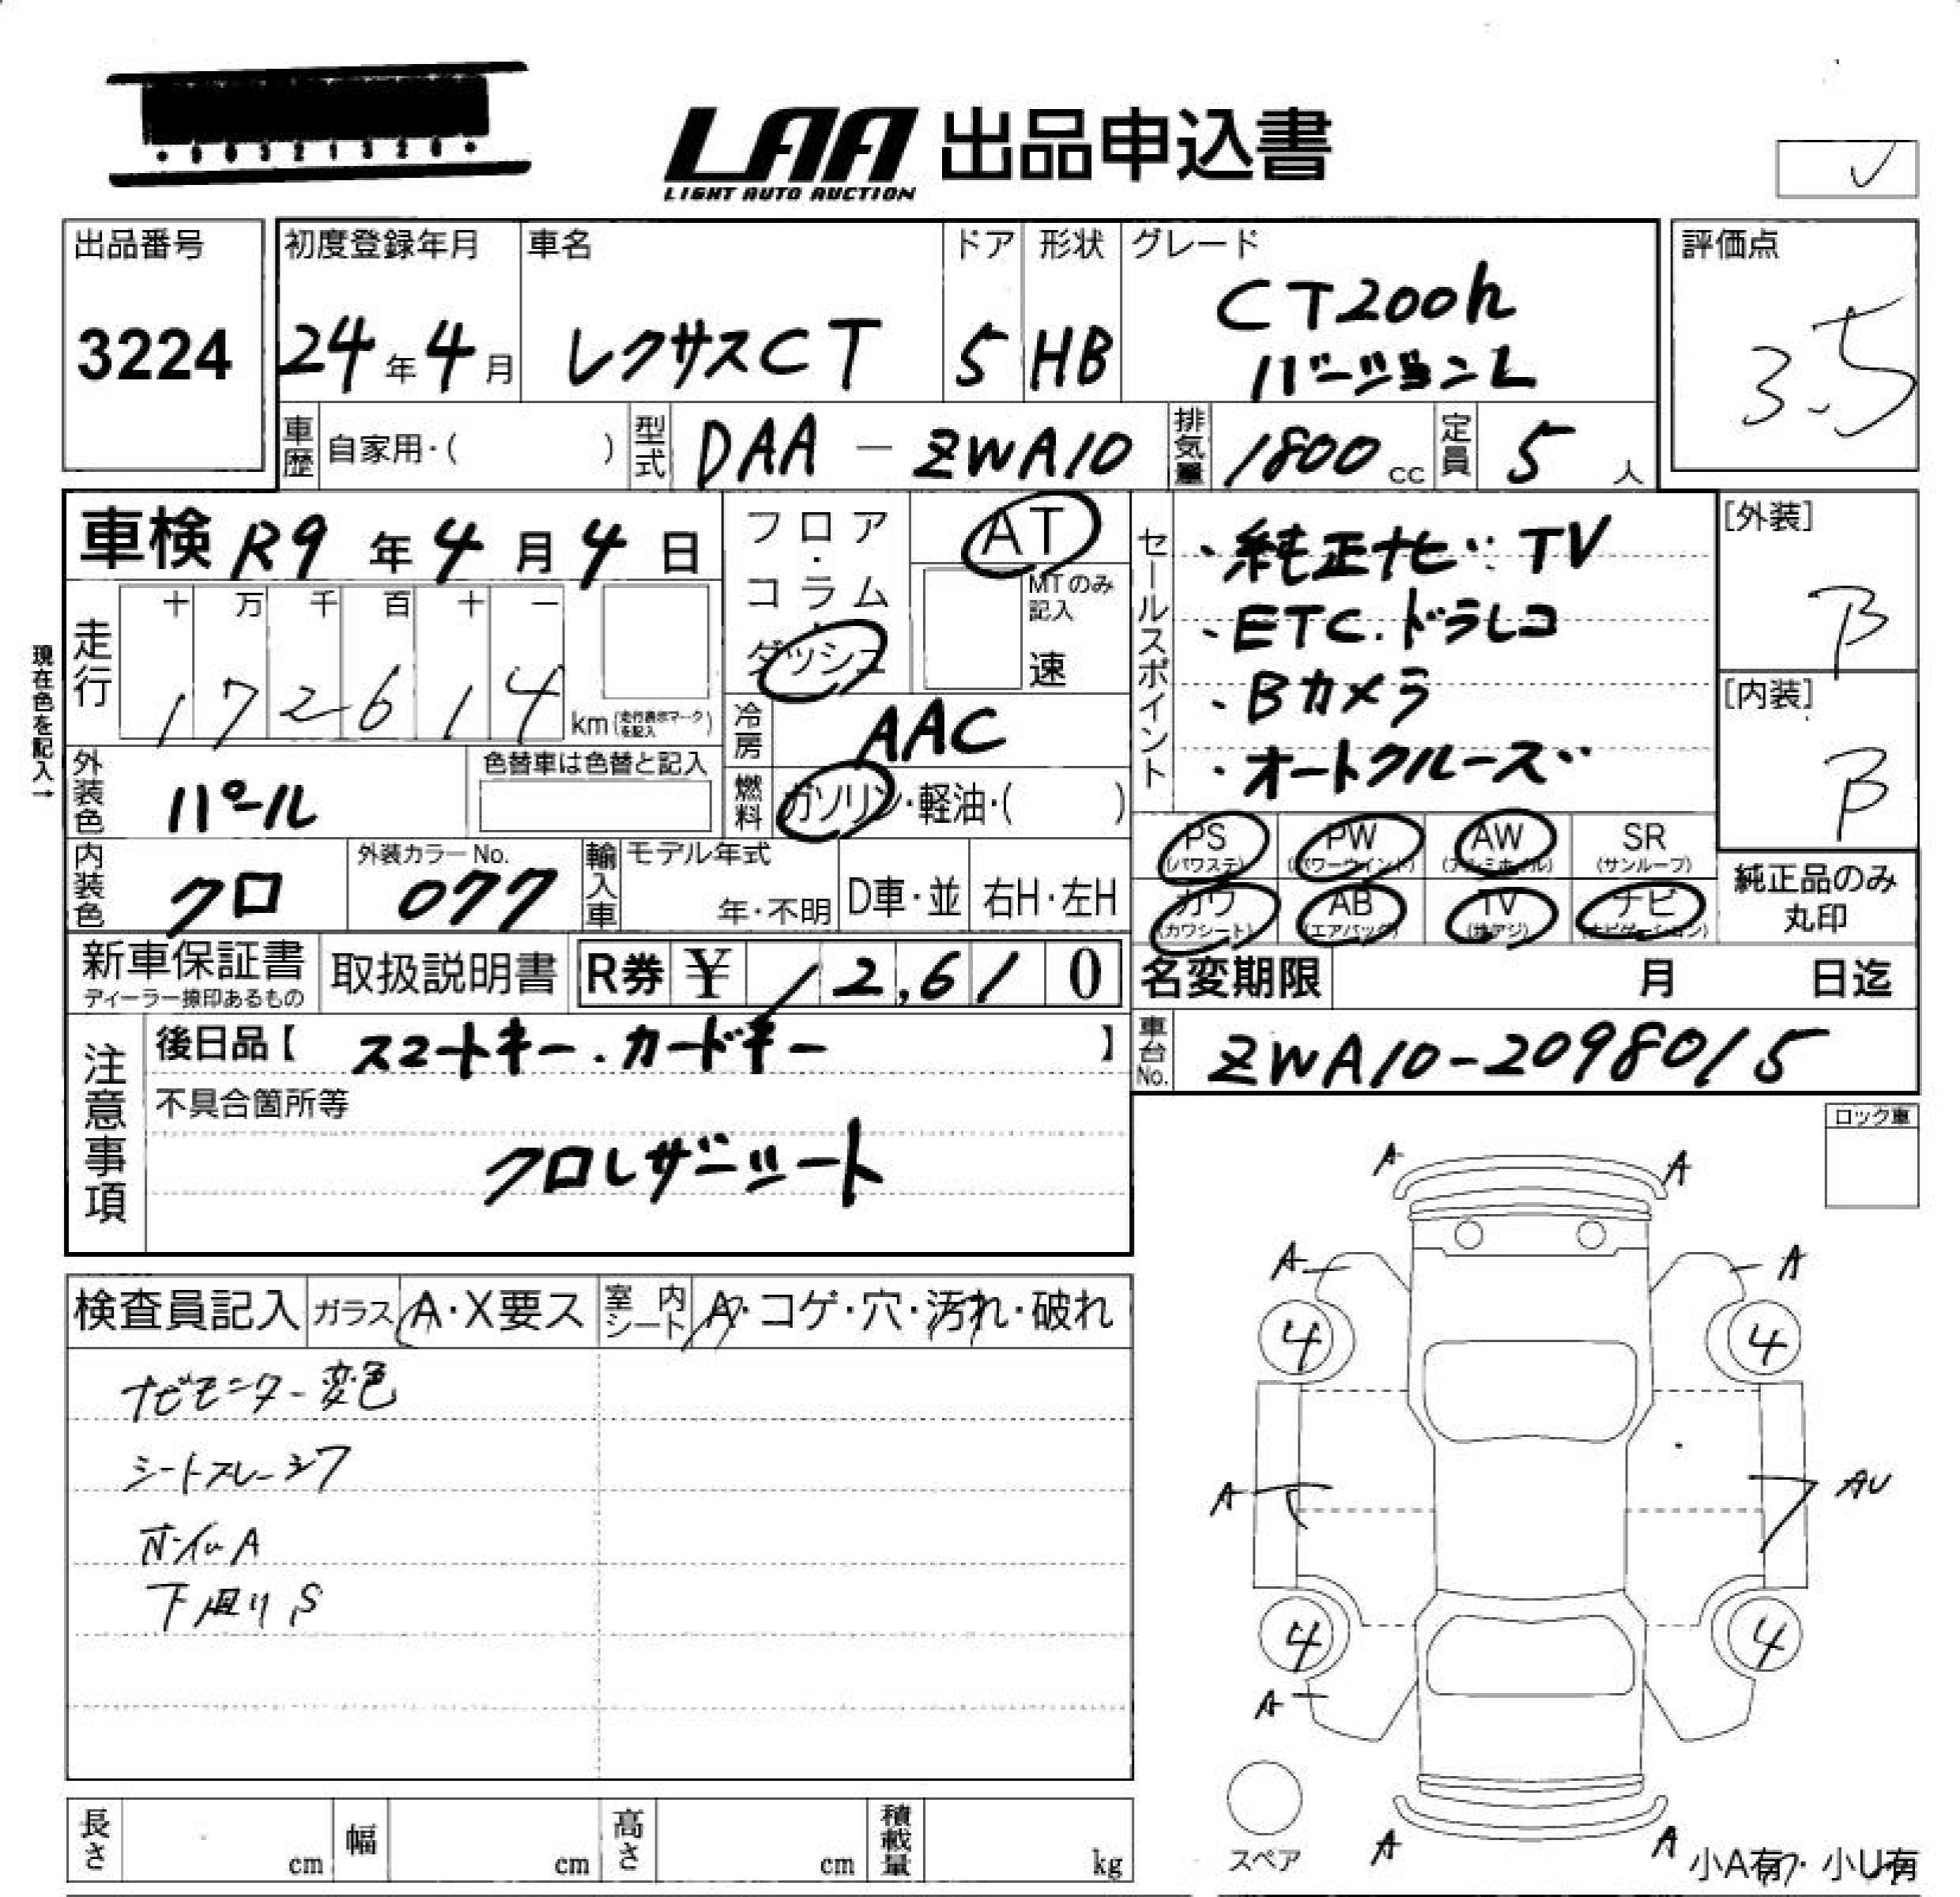 LAA 出品申込書
LIGHT AUTO AUCTION
出品番号
3224
初度登録年月
24年4月
車名
レクサスCT
ドア
5
形状
HB
グレード
CT200h
バージョンL
評価点
3.5
車歴
自家用・( )
型式
DAA - ZWA10
排気量
1800cc
定員
5人
車検 R9年4月4日
フロア・コラム・ダッシュ
AT
MTのみ記入
速
現在色を記入→
走行
十 万 千 百 十 一
172614
km(走行表示マークを記入)
冷房
AAC
外装色
パール
色替車は色替と記入
燃料
ガソリン・軽油・( )
内装色
クロ
外装カラーNo.
077
輸入車
モデル年式
年・不明
D車・並
右H・左H
セールスポイント
・純正ナビ・TV
・ETC.ドラレコ
・Bカメラ
・オートクルーズ
[外装]
B
[内装]
B
PS
(パワステ)
PW
(パワーウインド)
AW
(アルミホイル)
SR
(サンルーフ)
カワ
(カワシート)
AB
(エアバック)
TV
(地デジ)
ナビ
(ナビゲーション)
純正品のみ
丸印
新車保証書
ディーラー捺印あるもの
取扱説明書
R券 ¥12,610
名変期限 月 日迄
車台No.
ZWA10-2098015
注意事項
後日品【 スマートキー.カードキー 】
不具合箇所等
クロレザーシート
ロック車
検査員記入
ガラス A・X要ス
室内シート
A・コゲ・穴・汚れ・破れ
ナビモニター変色
シートスレ・シワ
ホイルA
下廻りS
A A
A A
4 4
A AU
4 4
A
A A
スペア
小A有・小U有
長さ cm
幅 cm
高さ cm
積載量 kg